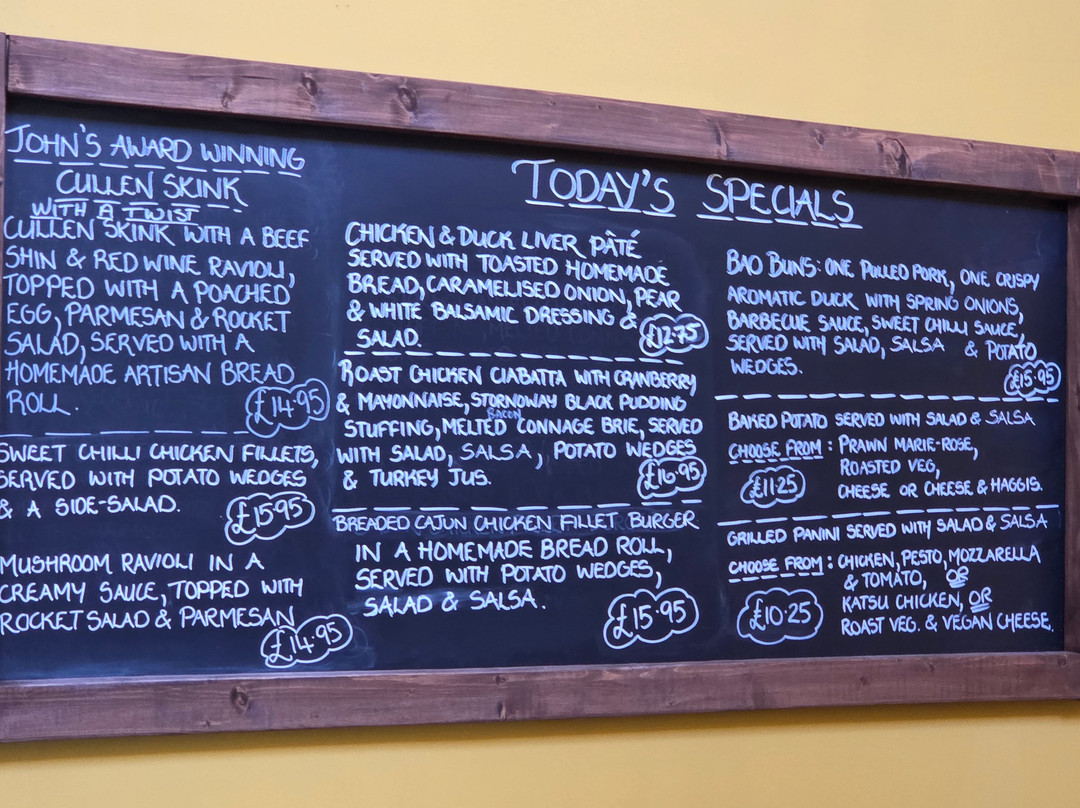 JOHN'S AWARD WINNING
CULLEN SKINK
WITH A TWIST
CULLEN SKINK WITH A BEEF
SHIN & RED WINE RAVIOLI,
TOPPED WITH A POACHED
EGG, PARMESAN & ROCKET
SALAD, SERVED WITH A
HOMEMADE ARTISAN BREAD
ROLL.
£14.95
SWEET CHILLI CHICKEN FILLETS,
SERVED WITH POTATO WEDGES
& A SIDE-SALAD.
£15.95
MUSHROOM RAVIOLI IN A
CREAMY SAUCE, TOPPED WITH
ROCKET SALAD & PARMESAN
£14.95
TODAY'S SPECIALS
CHICKEN & DUCK LIVER PÂTÉ
SERVED WITH TOASTED HOMEMADE
BREAD, CARAMELISED ONION, PEAR
& WHITE BALSAMIC DRESSING &
SALAD.
£12.75
ROAST CHICKEN CIABATTA WITH CRANBERRY
& MAYONNAISE, STORNOWAY BLACK PUDDING
BACON
STUFFING, MELTED CONNAGE BRIE, SERVED
WITH SALAD, SALSA, POTATO WEDGES
& TURKEY JUS.
£16.95
BREADED CAJUN CHICKEN FILLET BURGER
IN A HOMEMADE BREAD ROLL,
SERVED WITH POTATO WEDGES,
SALAD & SALSA.
£15.95
BAO BUNS: ONE PULLED PORK, ONE CRISPY
AROMATIC DUCK WITH SPRING ONIONS,
BARBECUE SAUCE, SWEET CHILLI SAUCE,
SERVED WITH SALAD, SALSA & POTATO
WEDGES.
£15.95
BAKED POTATO SERVED WITH SALAD & SALSA
CHOOSE FROM: PRAWN MARIE-ROSE,
ROASTED VEG,
£11.25
CHEESE OR CHEESE & HAGGIS.
GRILLED PANINI SERVED WITH SALAD & SALSA
CHOOSE FROM: CHICKEN, PESTO, MOZZARELLA
& TOMATO, OR
KATSU CHICKEN, OR
£10.25
ROAST VEG. & VEGAN CHEESE.